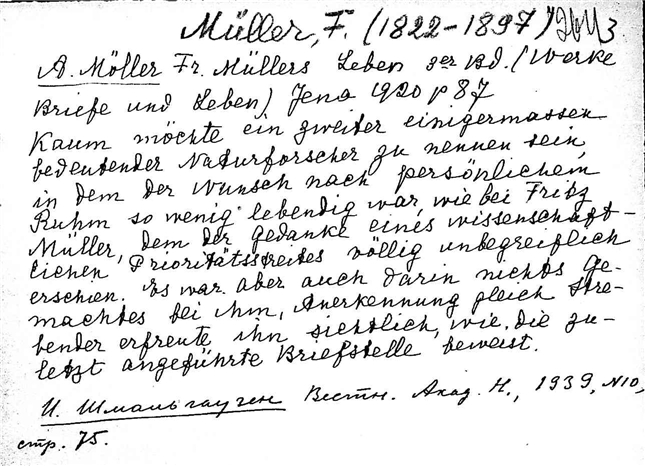 Müller, F. (1822-1897)
A. Möller Fr. Müllers Leben 3er Bd. (Werke
Briefe und Leben) Jena 1920 p 87
Kaum möchte ein zweiter einigermassen
bedeutender Naturforscher zu nennen sein,
in dem der Wunsch nach persönlichem
Ruhm so wenig lebendig war, wie bei Fritz
Müller, dem der Gedanke eines wissenschaft-
lichen Prioritätsstreites völlig unbegreiflich
erschien. Es war aber auch darin nichts Ge-
machtes bei ihm, Anerkennung gleich Stre-
bender erfreute ihn sichtlich, wie die zu-
letzt angeführte Briefstelle beweist.
И. Шмальгаузен Вестн. Акад. Н., 1939, N10,
стр. 75.